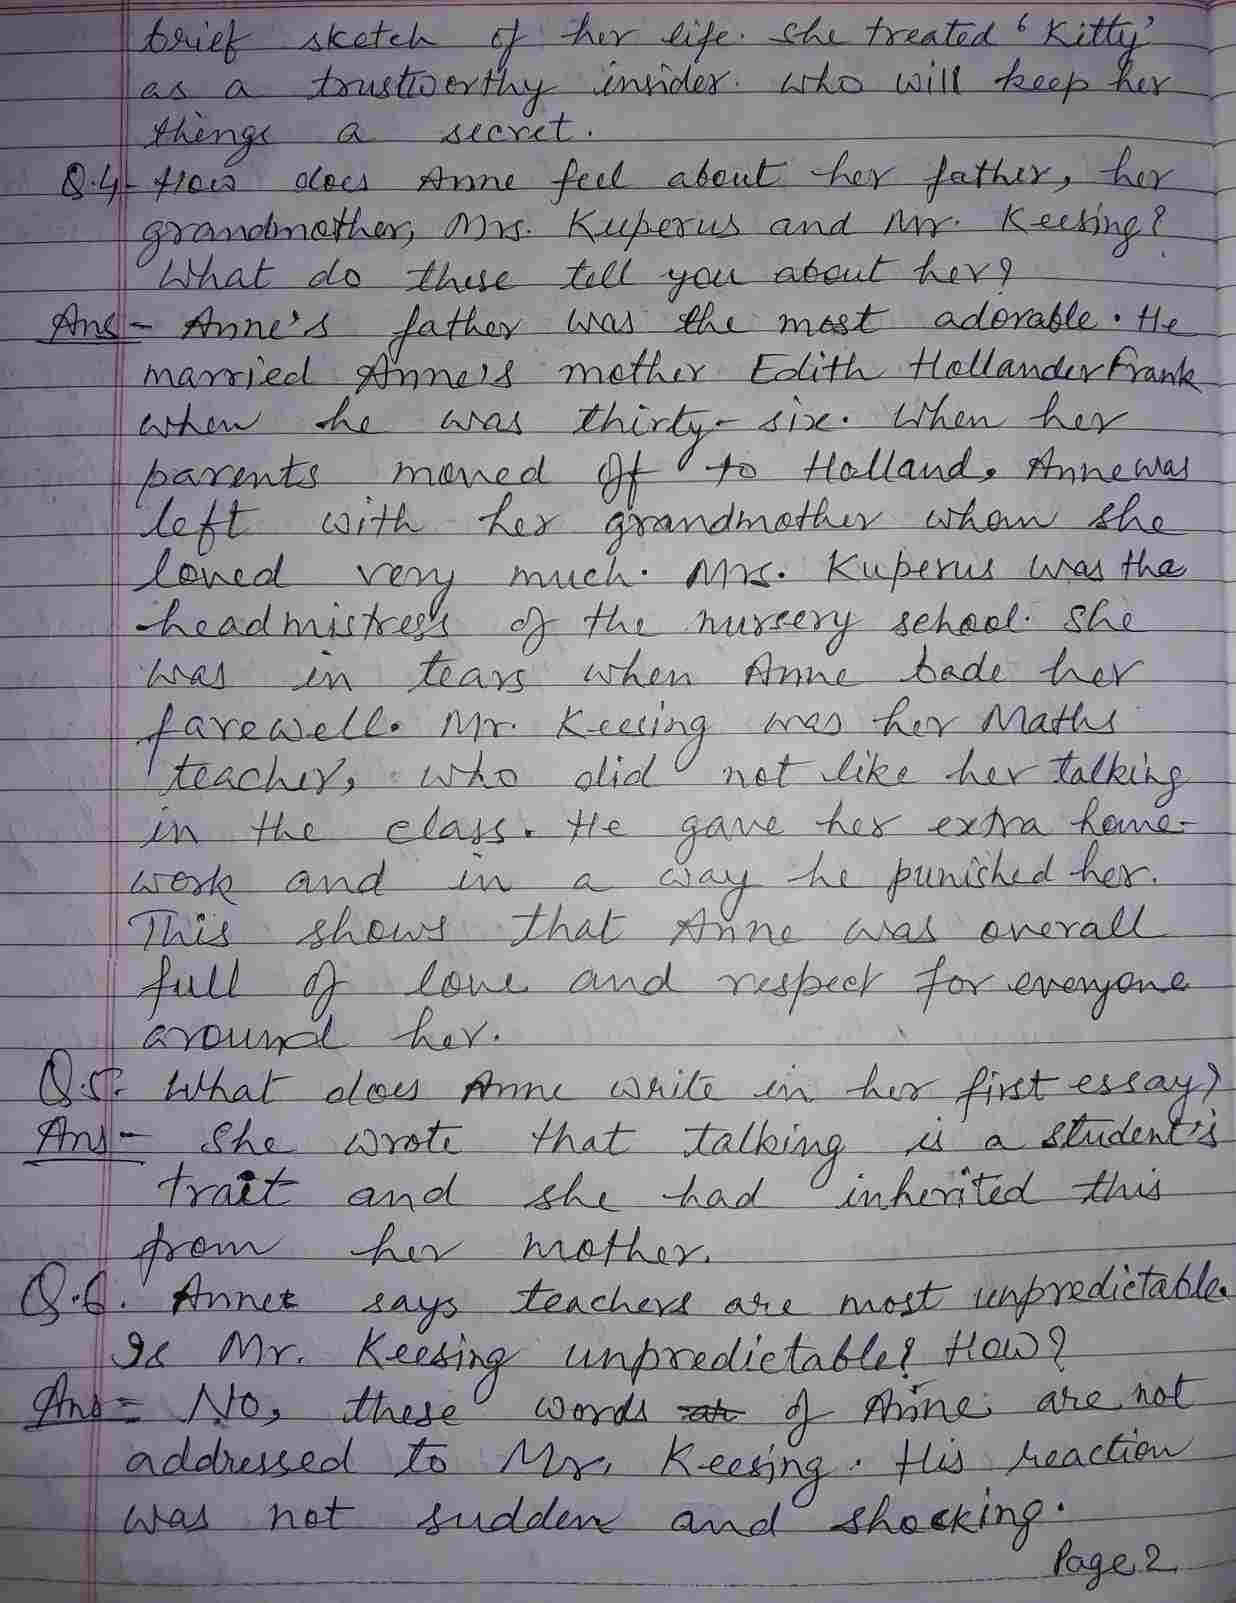 brief sketch of her life. She treated 'Kitty'
as a trustworthy insider. who will keep her
things a secret.
Q.4- How does Anne feel about her father, her
grandmother, Mrs. Kuperus and Mr. Keesing?
What do these tell you about her?
Ans- Anne's father was the most adorable. He
married Anne's mother Edith Hollander Frank
when he was thirty-six. When her
parents moved off to Holland, Anne was
left with her grandmother whom she
loved very much. Mrs. Kuperus was the
headmistress of the nursery school. She
was in tears when Anne bade her
farewell. Mr. Keesing was her Maths
teacher, who did not like her talking
in the class. He gave her extra home-
work and in a way he punished her.
This shows that Anne was overall
full of love and respect for everyone
around her.
Q.5. What does Anne write in her first essay?
Ans- She wrote that talking is a student's
trait and she had inherited this
from her mother.
Q.6. Anne says teachers are most unpredictable.
Is Mr. Keesing unpredictable? How?
Ans- No, these words of Anne are not
addressed to Mr. Keesing. His reaction
was not sudden and shocking.
Page 2